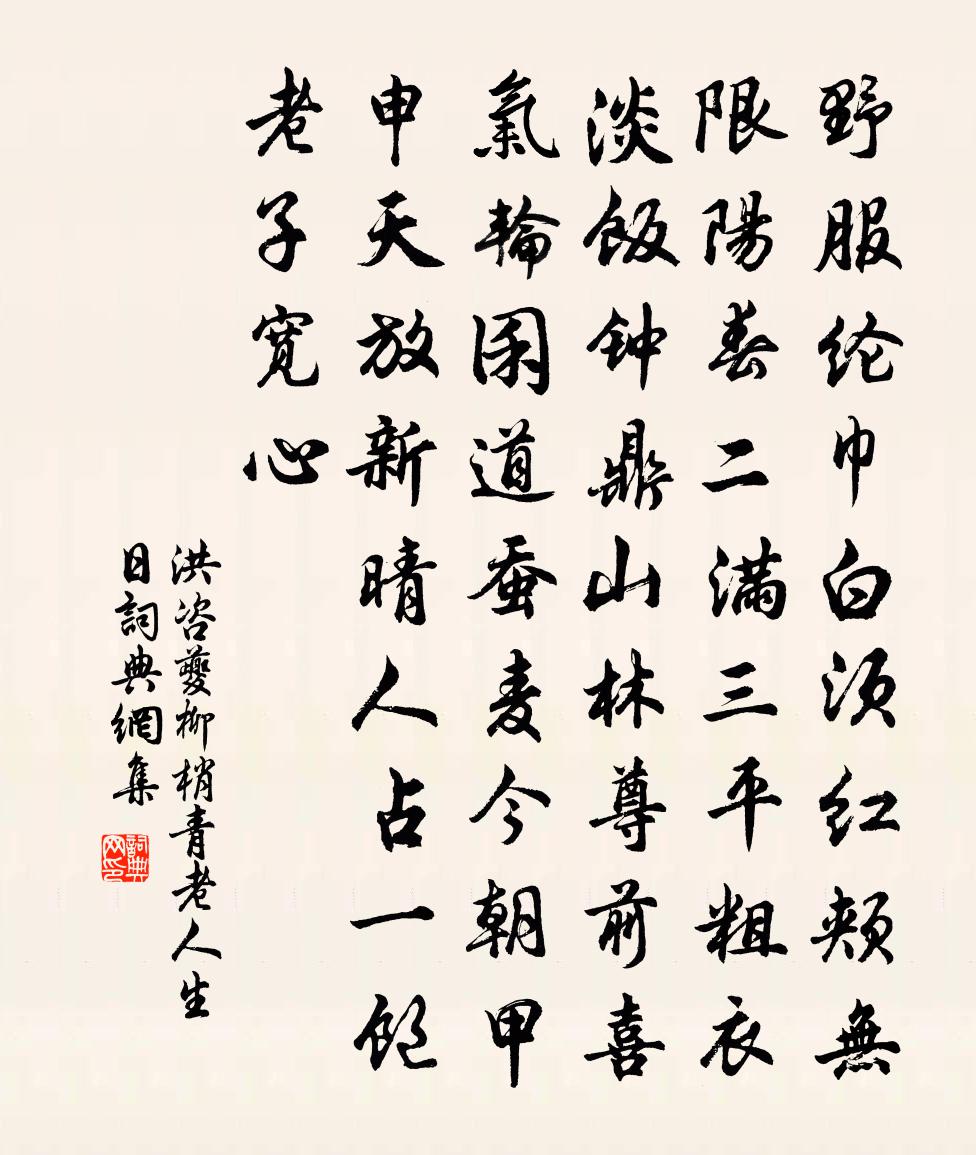 野服纶巾白须红颊無
限陽春二满三平粗衣
淡飯钟鼎山林尊前喜
氣輪囷道蚕麦今朝甲
申天放新晴人占一飽
老子宽心
洪咨夔柳梢青老人生
日詞典網集
詞典网印